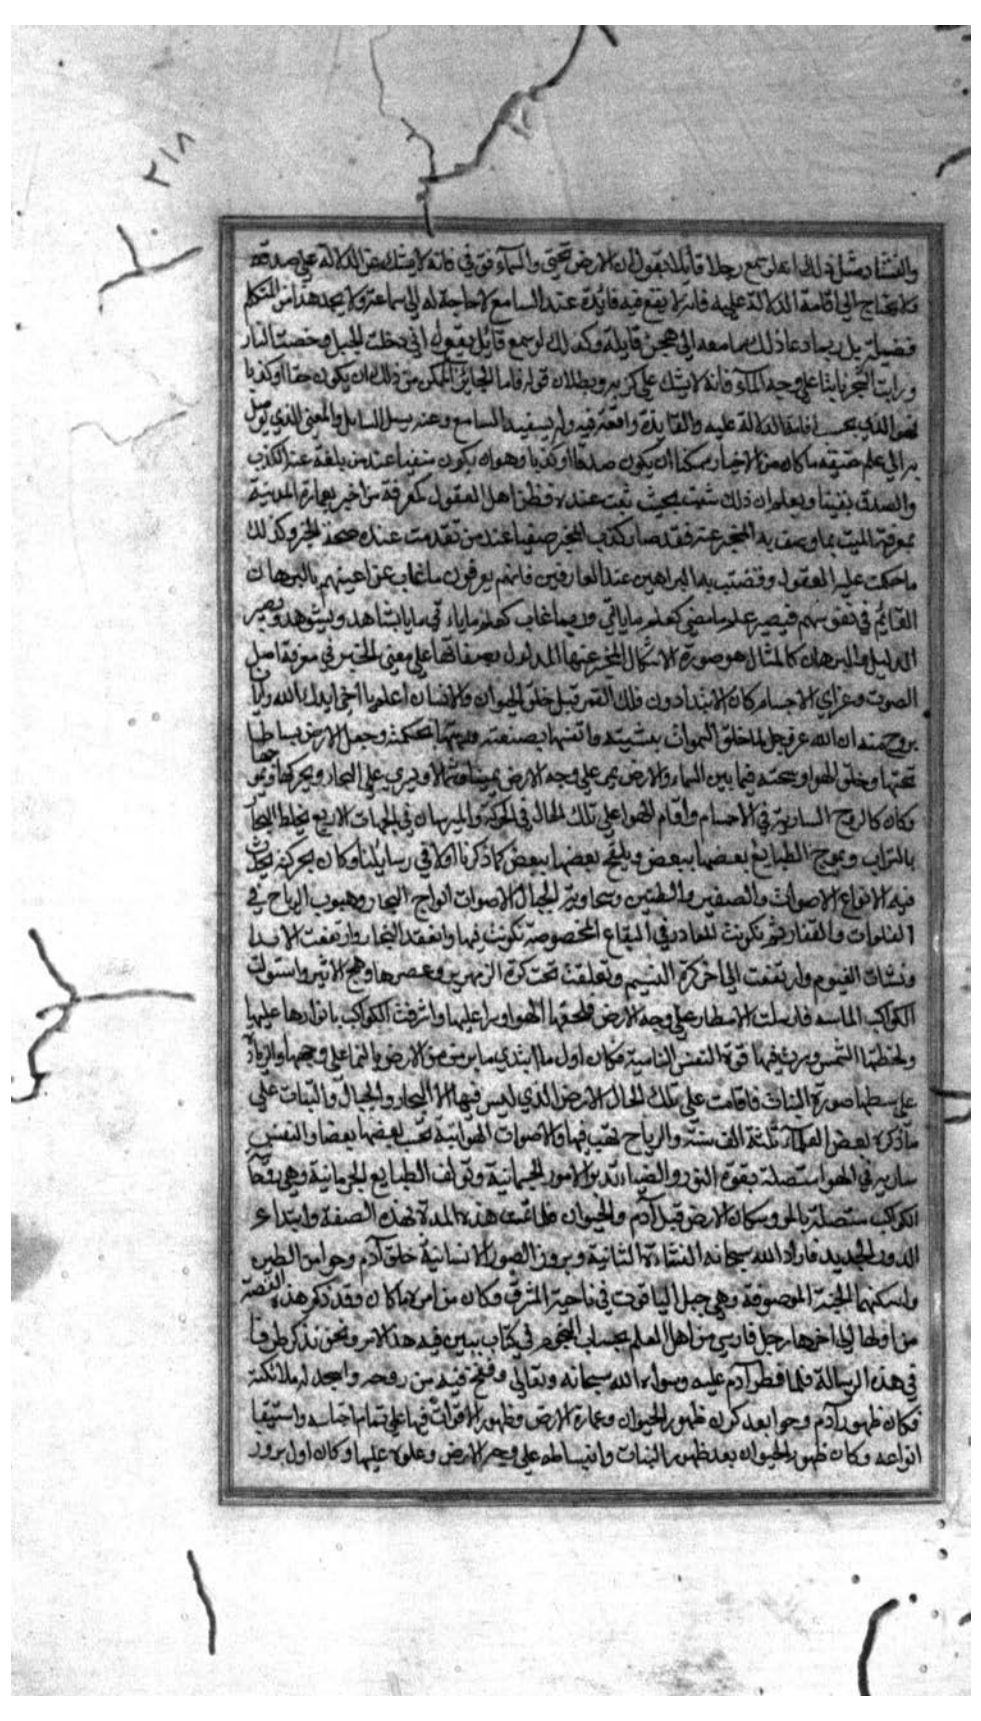 ٢١٨
والفساد مثل ذلك انه لو سمع رجلا قائلا يقول ان الارض تحتى والسماء فوقى فانه لا يشك عن الدلالة على صدقه
فلا يحتاج الى اقامة الدلالة عليه فانه لا يقع فيه فائدة عند السامع لا حاجة له الى سماعه ولا يجد هذا من المتكلم
فضيلة بل ربما دعا ذلك سامعه الى هجن قايله وكذلك لو سمع قائل يقول انى دخلت الجبل وخضت النار
ورايت الشجر نابتا على وجه الماء فانه لا يشك على كذبه وبطلان قوله فاما الجائز الممكن من ذلك ان يكون حقا او كذبا
فهو الذي يجب اقامة الدلالة عليه والفايدة واقعة فيه ولم يستفيد السامع وعنه يسل السايل والمعنى الذي يوصل
به الى علم حقيقه ما كان من الاخبار ممكنا ان يكون صدقا او كذبا وهو ان يكون متفيا عند من بلغه عنه الكذب
والصدق يقينا ويعلم ان ذلك بحيث ثبت عنده قطن اهل العقول كمعرفة من اخبر بعمارة المدينة
بمعرفة الميت بما وصف به المخبر عنه فقد صار كذب المخبر صفيا عند من تقدمت عنده صحة الخبر وكذلك
ما حكمت عليه العقول وقضت بها البراهين عند العارفين فانهم يعرفون ما غاب عن اعينهم بالبرهان
القائم في نفوسهم فيصير علم ما مضى كعلم ما ياتي وفيما غاب كعلم ما يشاهد ويصير
الدليل والبرهان كالمثال هو صورة الاشكال المخبر عنها المدلول بصفاتها على معنى الحق في معرفة اصل
الصوت وعن اي الاجسام كان الابتداء دون فلك القمر قبل خلق الحيوان والانسان اعلم يا اخي ايدك الله وايانا
بروح منه ان الله عز وجل لما خلق السموات بمشيته واتقنها بصنعته بحكمته وجعل الارض بساطها
تحتها وخلق الهوا وسخته فيما بين السماء والارض يمر على وجه الارض يمينا وشمالا ويجري على البحار ويحركها
وكان كالروح السارية في الاجسام واقام الهوا على تلك الحال في الحركة والميران في الجهات الاربع يخلط البخار
بالتراب ويمزج الطبايع بعضها ببعض ويلقح بعضها ببعض كما ذكرنا اولا في رسايلنا وكان بحركته يحدث
فيه الانواع الاصوات والصفير والطنين وتجاوبه الجبال الاصوات امواج البحار وهبوب الرياح في
الفلوات والقفار ثم تكونت المعادن في البقاع المخصوصة بتكونها فيها وانعقد البخار وارتفعت الاندا
ونشات الغيوم وارتفعت الى اخر كرة النسيم وتعلقت تحت كرة الزمهرير وعصرها وهج الاثير واستولت
الكواكب المائية فارسلت الامطار على وجه الارض فلحقها الهوا وبرا عليها واشرقت الكواكب بانوارها عليها
ولحظتها الشمس وسرت فيها قوة النفس النامية فكان اول ما ابتدي بنا برز من الارض بالنما على وجهها والزيادة
على سطحها صورة النبات فاقامت على تلك الحال الارض الذي ليس فيها الا البحار والجبال والنبات على
ما ذكره بعض العلماء ثلثة الف سنة والرياح تهب فيها والاصوات الهوائية تجيب بعضها بعضا والنفس
سارية في الهوا متصلة بقوة النور والضياء تدبر الامور الجسمانية وتولف الطبايع الجرمانية وهي
الكواكب متصلة بالجو وسكان الارض قبل آدم والحيوان فلما تمت هذه المدة بهذه الصفة وابتداء
الدور الجديد فاراد الله سبحانه النشاءة الثانية وبروز الصورة الانسانية خلق آدم وحوا من الطين
واسكنهما الجنة الموصوفة وهي جبل الياقوت في ناحية المشرق وكان من امره ما كان وقد ذكر هذه القصة
من اولها الى اخرها رجل فارسي من اهل العلم بحساب النجوم في كتاب يبين فيه هذا الامر ونحن نذكر طرفا
في هذه الرسالة فلما فطر آدم عليه وسواه الله سبحانه وتعالى ونفخ فيه من روحه واسجد له ملائكته
فكان ظهور آدم وحوا بعد كون ظهور الحيوان وعمارة الارض وظهور الاقوات فيها على تمام اجناسه واستيفا
انواعه وكان ظهور الحيوان بعد ظهور النبات وانبساطه على وجه الارض وعلوه عليها وكان اول بروز